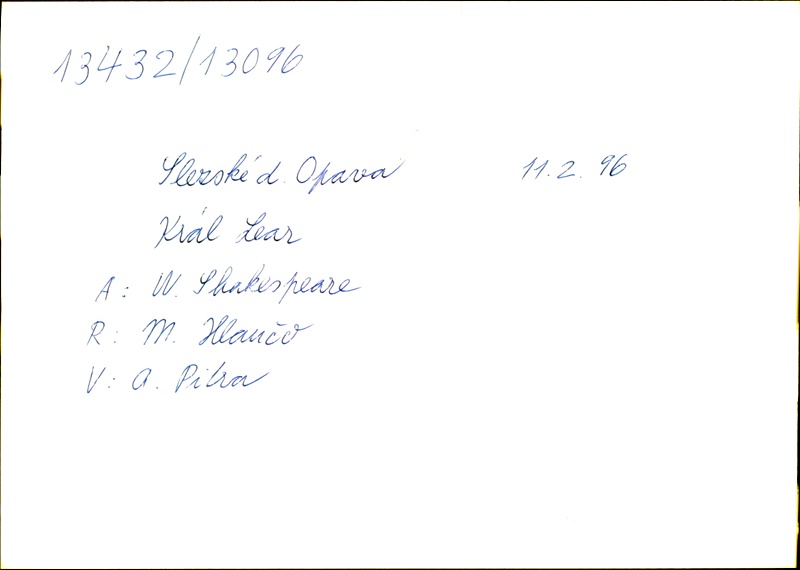 13432/13096
Slezské d. Opava 11.2.96
Král Lear
A: W. Shakespeare
R: M. Hlaučo
V: A. Pitra